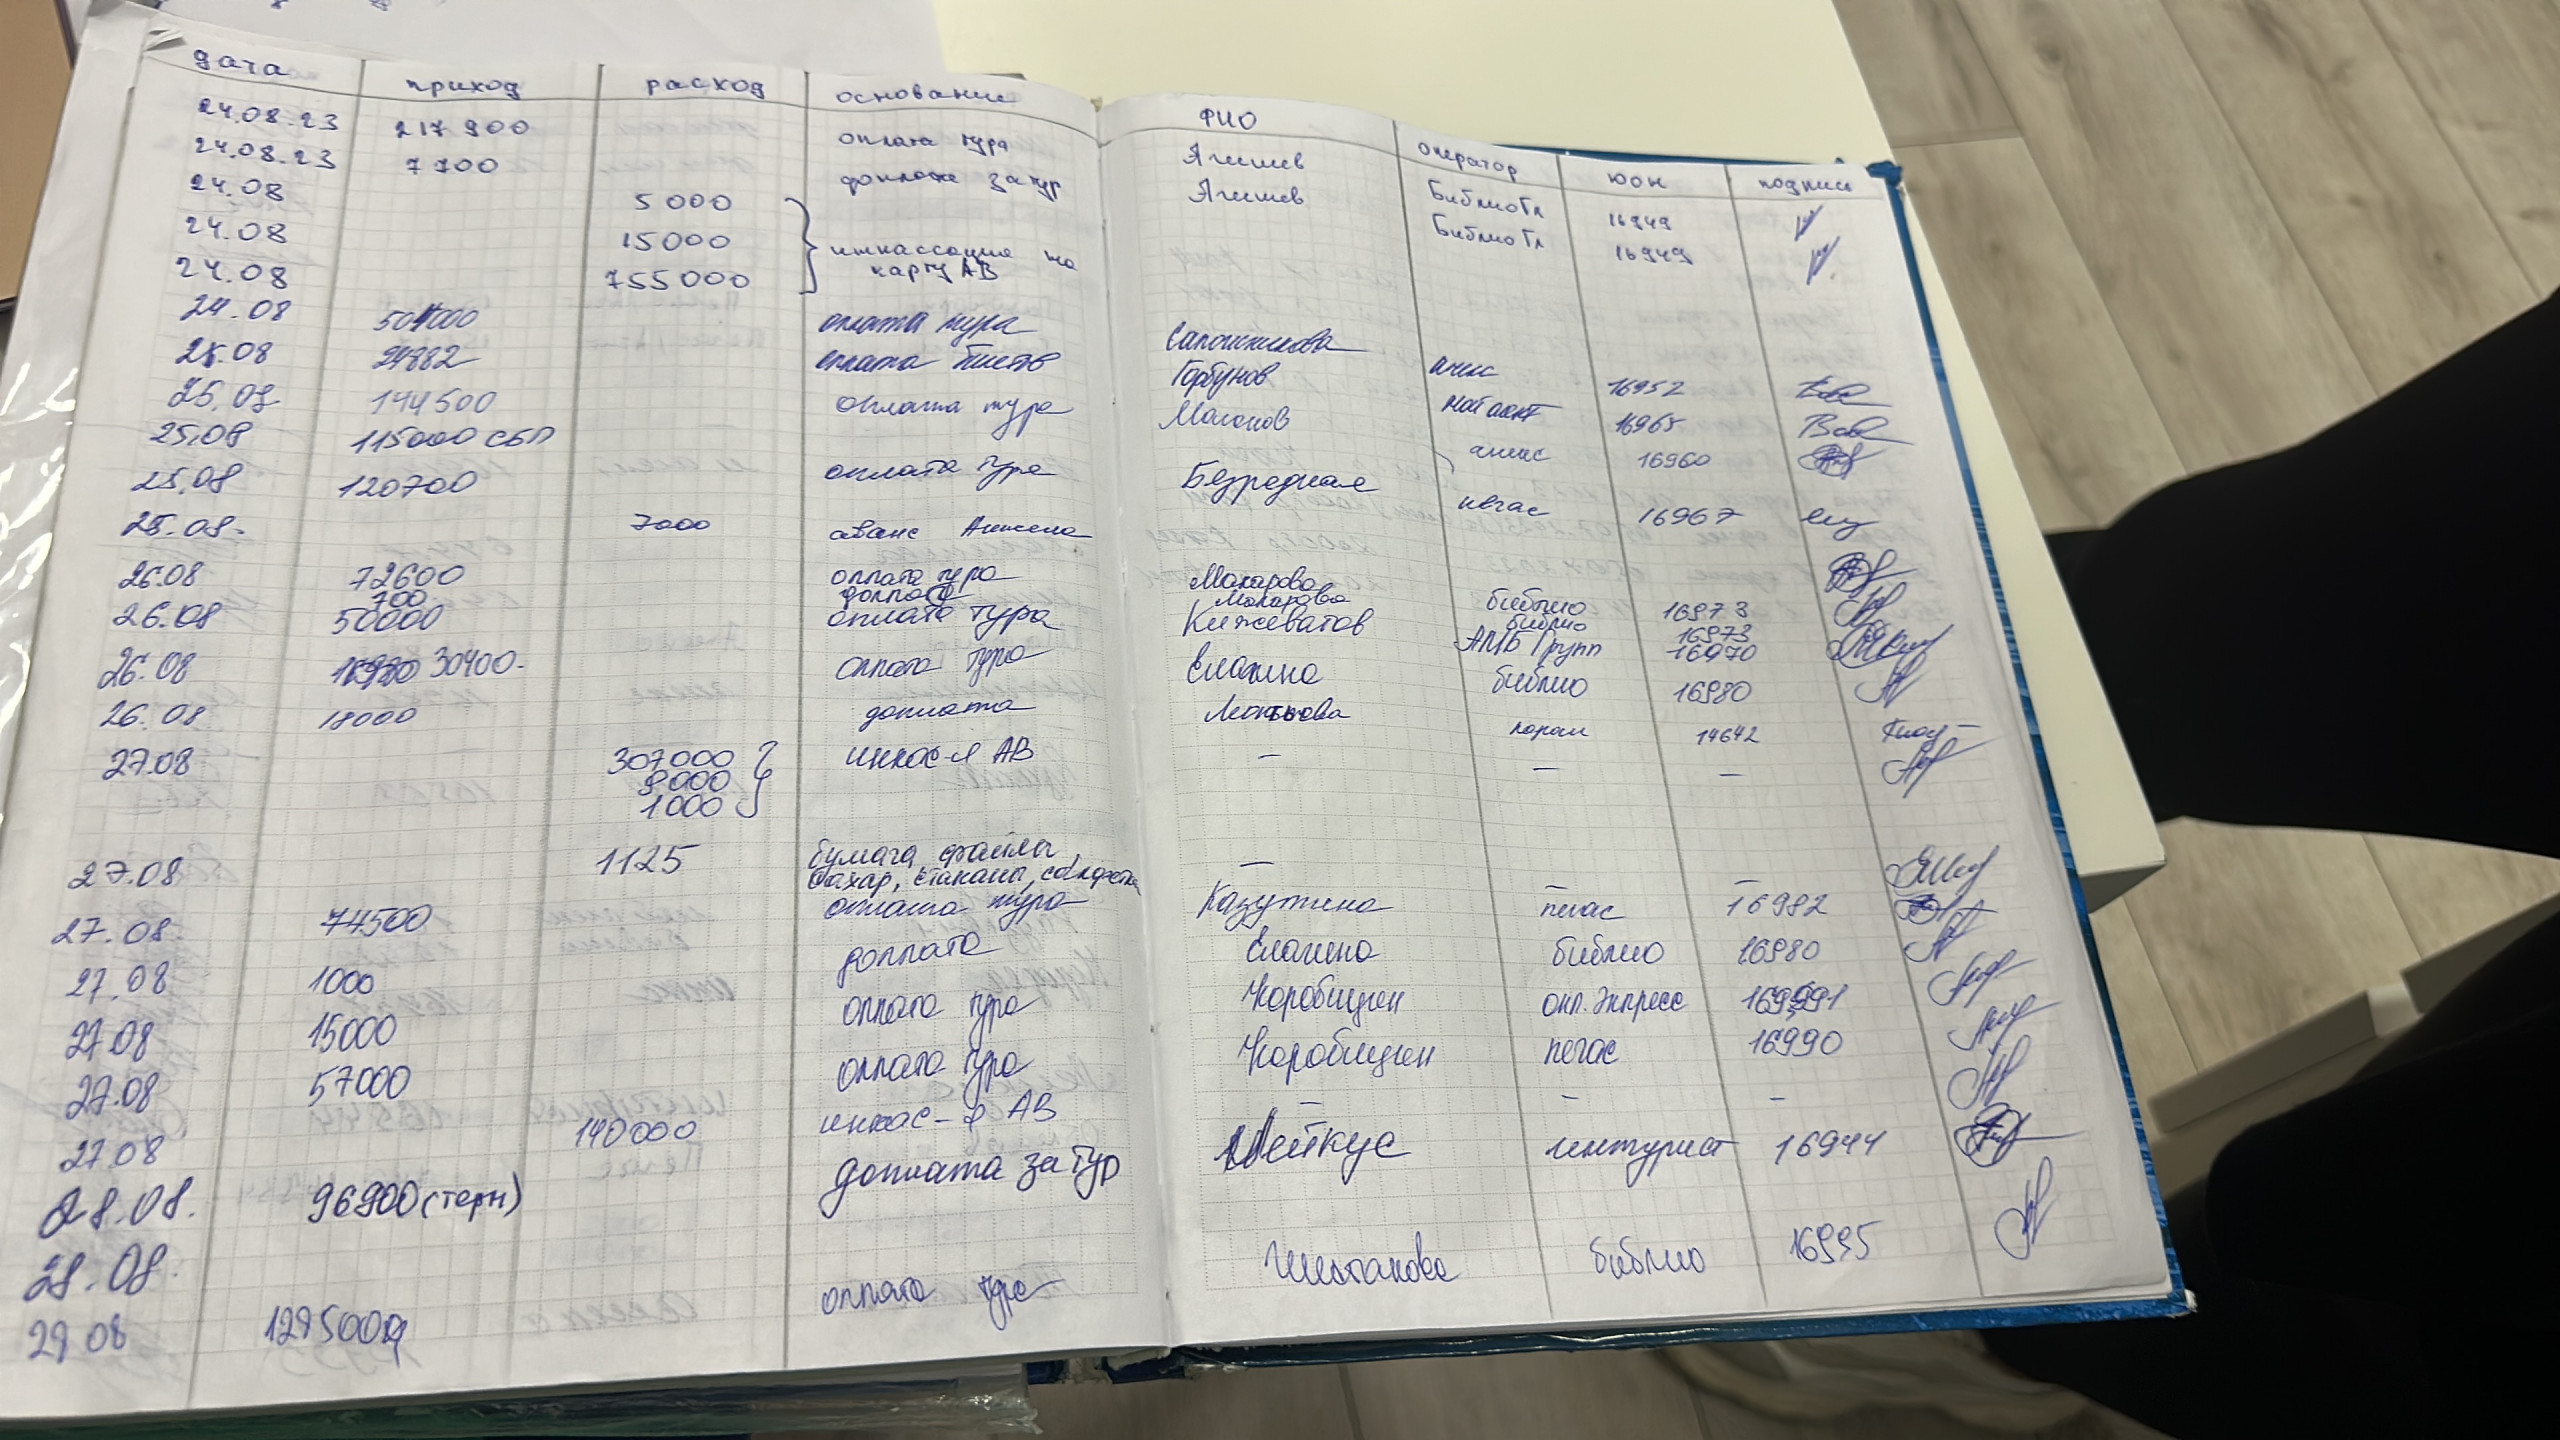 дата приход расход основание ФИО оператор ЮОН подпись
24.08.23 217 900 оплата тура Ягишев БиблиоГл 16949
24.08.23 7 700 доплата за тур Ягишев БиблиоГл 16949
24.08 5 000
24.08 15000 инкассация на
24.08 755000 карту АВ
24.08 оплата тура Сапожникова анекс 16952
25.08 оплата Горбунов 16965
25.08 144500 оплата тура Маланов анекс 16960
25.08 115000 СБП
25.08 120700 оплата тура Безредная пегас 16967
25.08. 7000 аванс Анжела
26.08 72600 оплата тура Макарова библио 16973
700 доплата Макарова библио 16973
26.08 50000 оплата тура Кижеватов АМБ Групп 16970
26.08 30400- оплата тура Елагина библио 16980
26.08 18000 доплата Леонтьева корал 14642
27.08 307000 инкас-я АВ – – –
9000
1000
27.08 1125 бумага, файлы, – – –
сахар, стаканы, салфетки
27.08. 74500 оплата тура Казутина пегас 16982
27.08 1000 доплата Елагина библио 16980
27.08 15000 оплата тура Коробицин 16991
27.08 57000 оплата тура Коробицин пегас 16990
27.08 140000 инкас-я АВ – – –
28.08. 96900 (терм) доплата за тур Мейкус интурист 16944
28.08.
29.08 129500 оплата тура Шестакова библио 16995